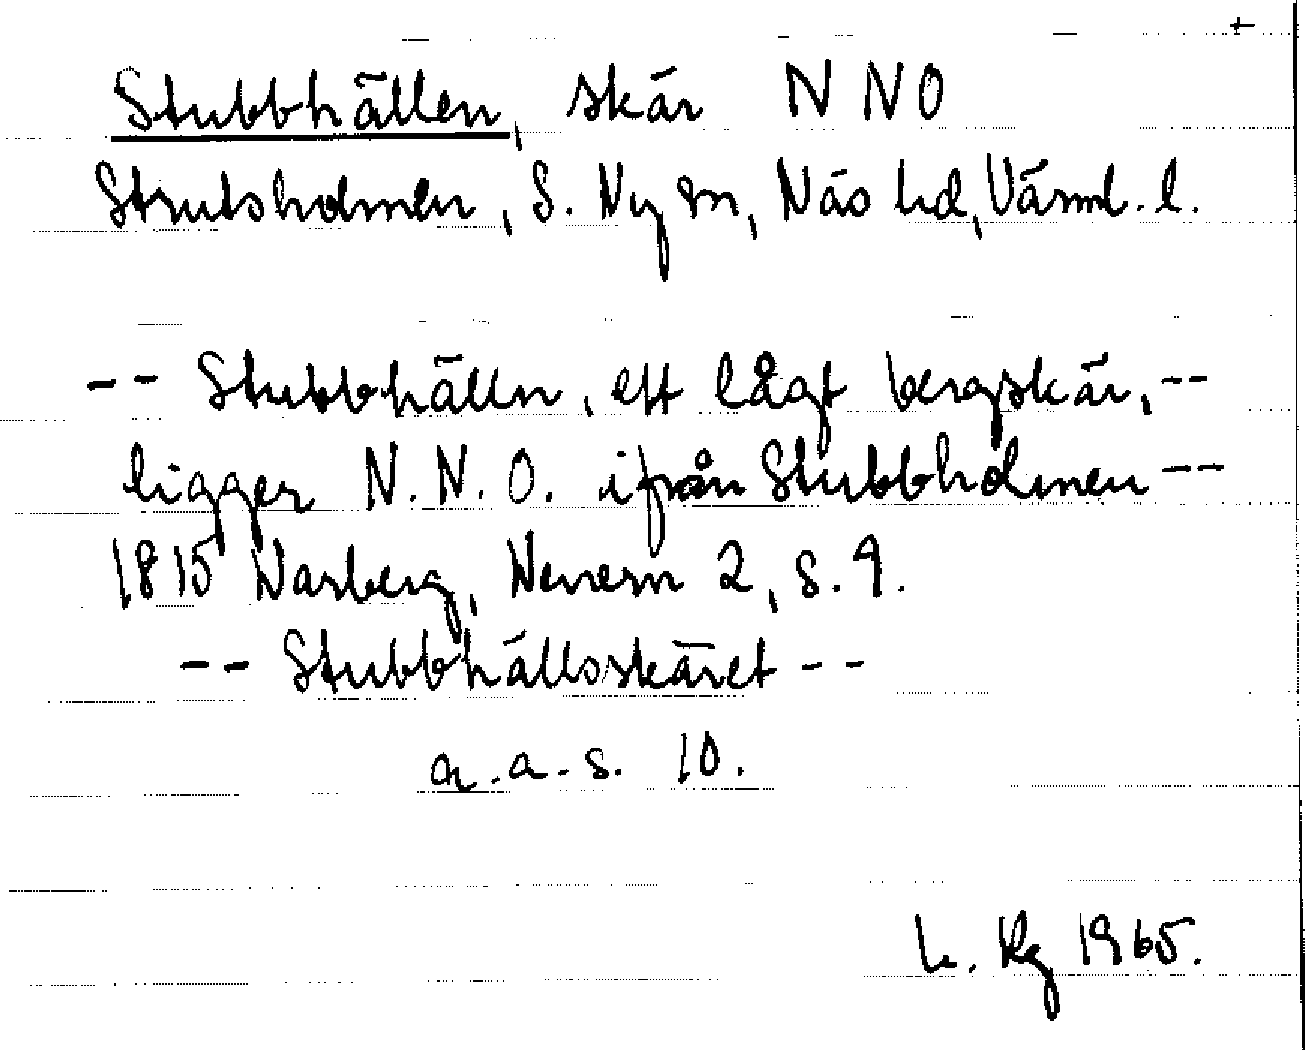 Stubbhällen, skär N NO
Strutsholmen, S. Ny sn, Näs hd, Värml. l.
-- Stubbhällen, ett lågt bergskär, --
ligger N.N.O. ifrån Stubbholmen --
1815 Warberg, Wenern 2, s. 9.
-- Stubbhällsskäret --
a.a.s. 10.
1965.